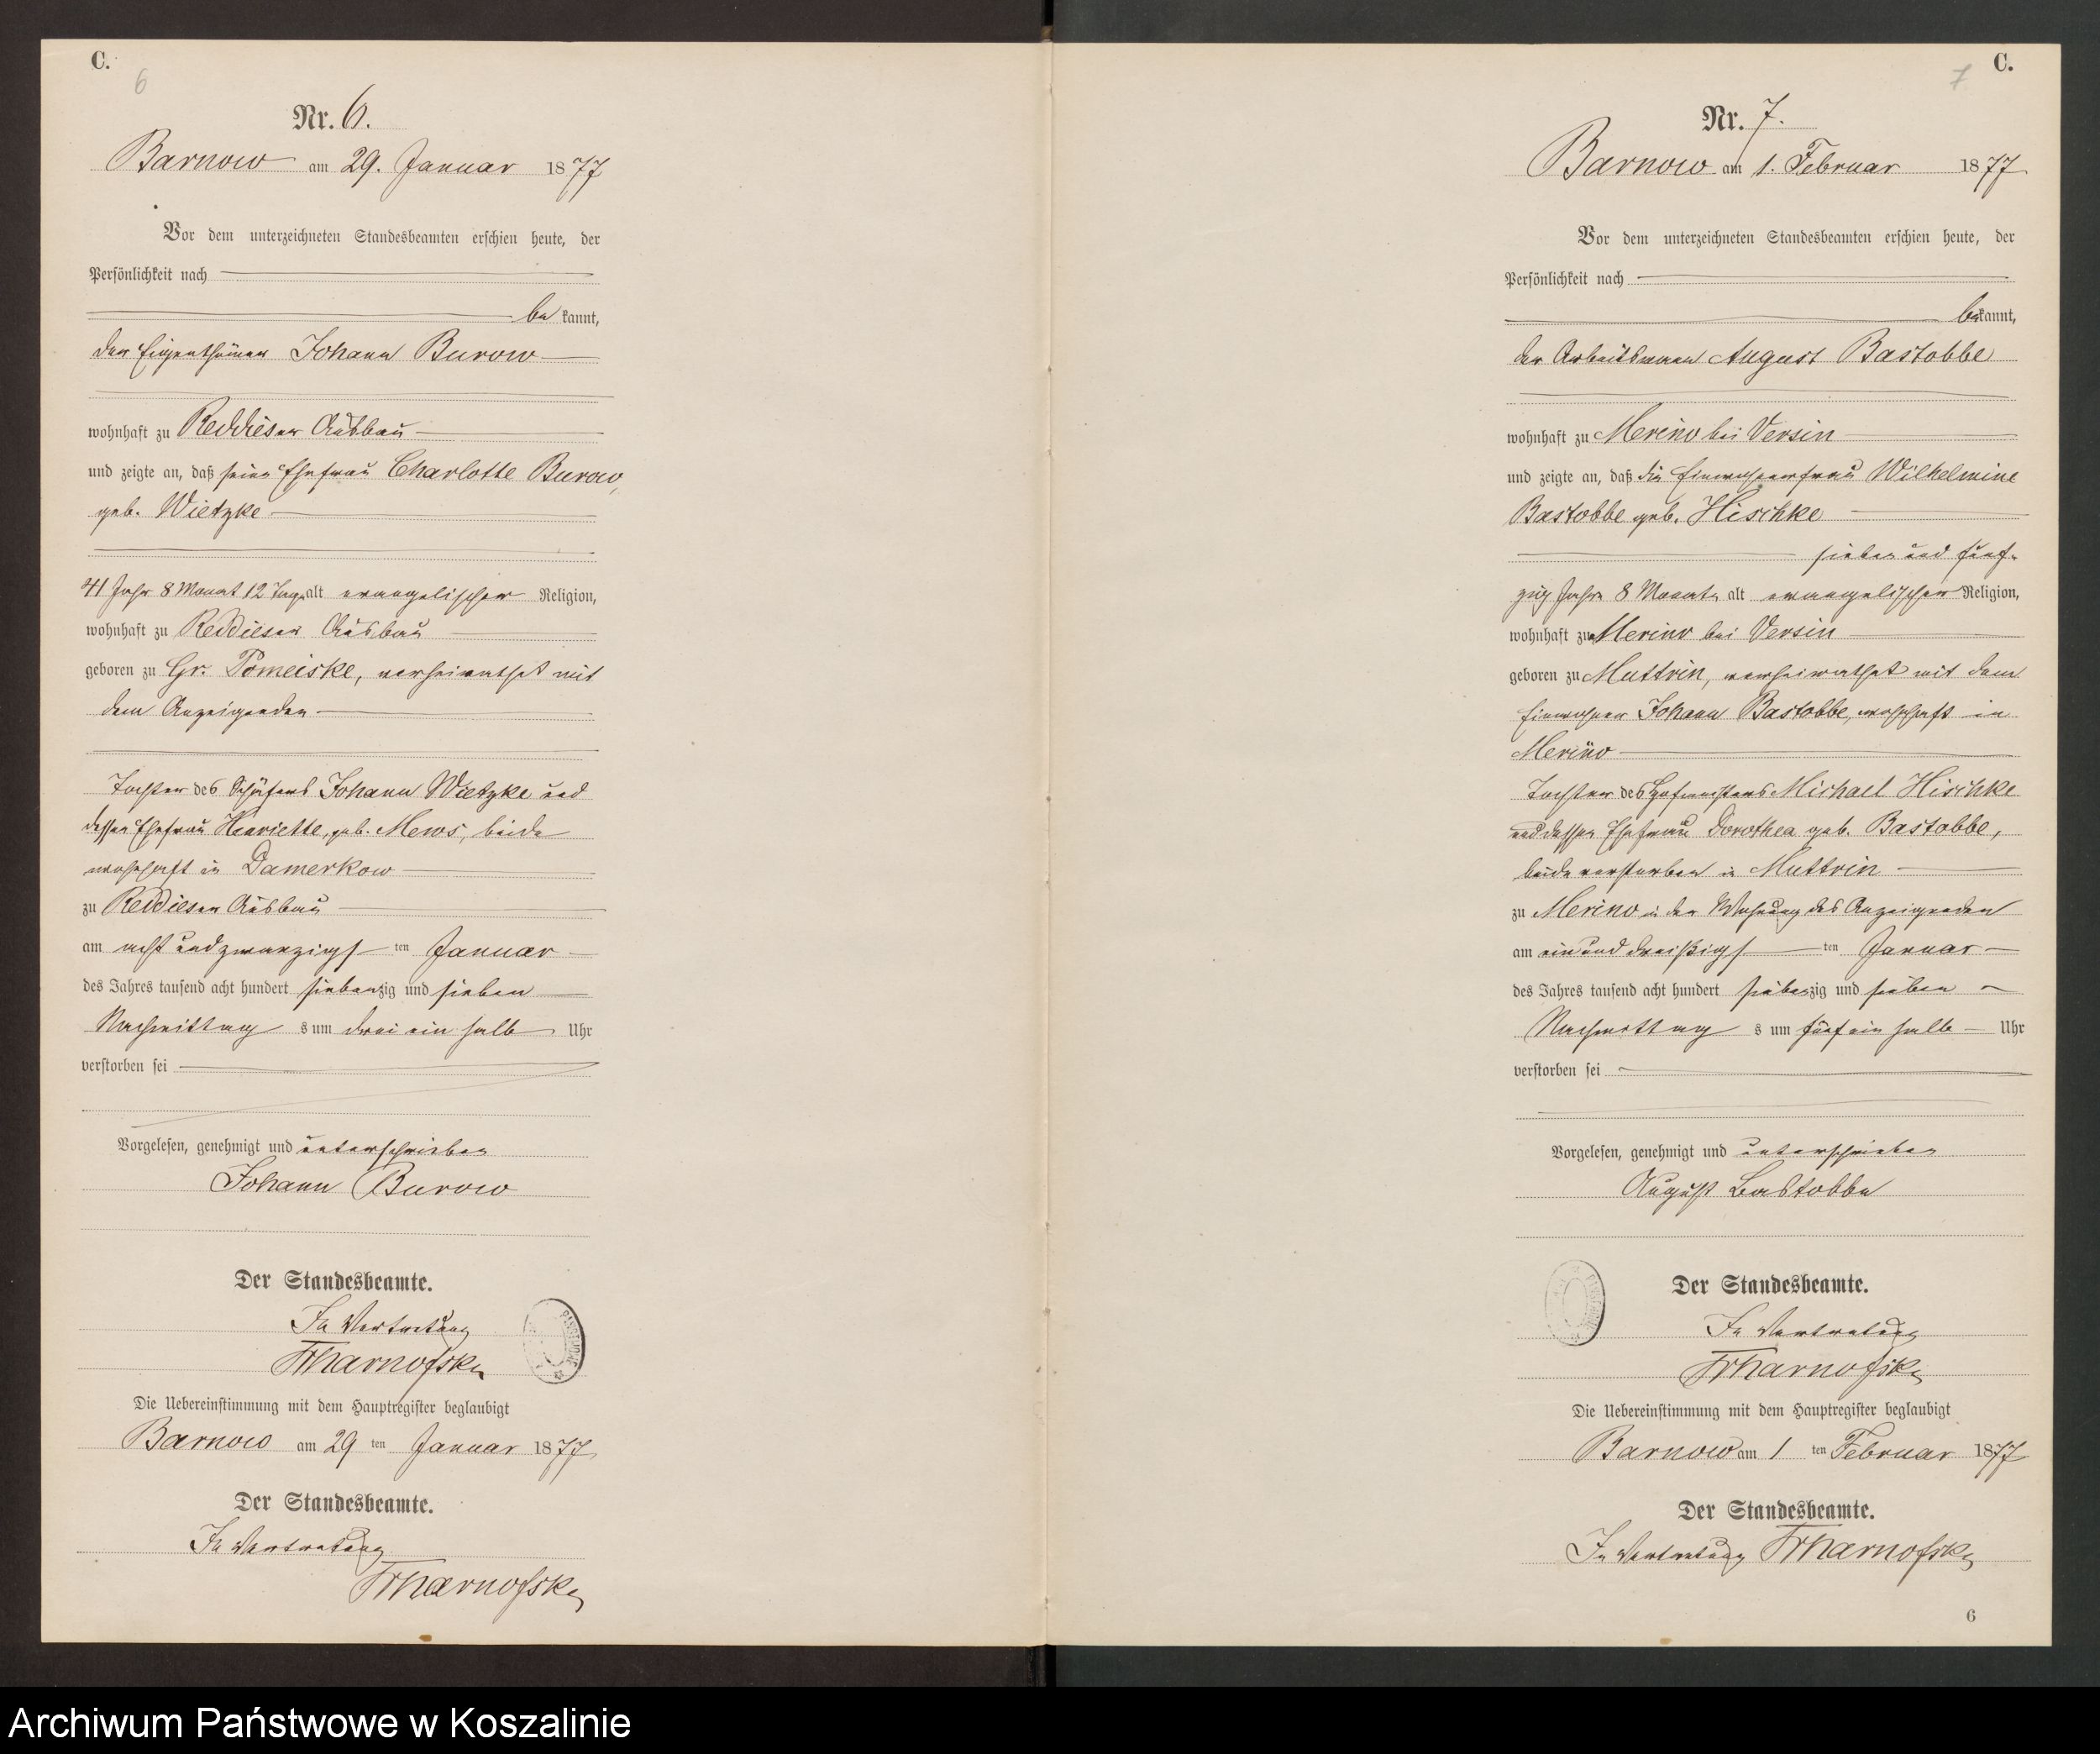 C.
6
Nr. 6.
Barnow am 29. Januar 1877
Vor dem unterzeichneten Standesbeamten erschien heute, der
Persönlichkeit nach
be kannt,
der Eigenthümer Johann Burow
wohnhaft zu Reddieser Ausbau
und zeigte an, daß seine Ehefrau Charlotte Burow,
geb. Wietzke
41 Jahr 8 Monat 12 Tage alt evangelischer Religion,
wohnhaft zu Reddieser Ausbau
geboren zu Gr. Pomeiske, verheirathet mit
dem Anzeigenden
Tochter des Schäfers Johann Wietzke und
dessen Ehefrau Henriette, geb. Mews, beide
wohnhaft in Damerkow
zu Reddieser Ausbau
am acht und zwanzigs ten Januar
des Jahres tausend acht hundert siebenzig und sieben
Nachmittag s um drei ein halb Uhr
verstorben sei
Vorgelesen, genehmigt und unterschrieben
Johann Burow
Der Standesbeamte.
In Vertretung
Die Uebereinstimmung mit dem Hauptregister beglaubigt
Barnow am 29 ten Januar 1877
Der Standesbeamte.
In Vertretung
C.
7
Nr. 7.
Barnow am 1. Februar 1877
Vor dem unterzeichneten Standesbeamten erschien heute, der
Persönlichkeit nach
bekannt,
der Arbeitsmann August Bastobbe
wohnhaft zu Merino bei Versin
und zeigte an, daß die Einwohnerfrau Wilhelmine
Bastobbe geb. Hischke
sieben und fünf-
zig Jahre 8 Monate alt evangelischer Religion,
wohnhaft zu Merino bei Versin
geboren zu Muttrin, verheirathet mit dem
Einwohner Johann Bastobbe, wohnhaft in
Merino
Tochter des Hofmeisters Michael Hischke
und dessen Ehefrau Dorothea geb. Bastobbe,
beide verstorben in Muttrin
zu Merino in der Wohnung des Anzeigenden
am ein und dreißigs ten Januar
des Jahres tausend acht hundert siebenzig und sieben
Nachmittag s um fünf ein halb Uhr
verstorben sei
Vorgelesen, genehmigt und unterschrieben
August Bastobbe
Der Standesbeamte.
In Vertretung
Die Uebereinstimmung mit dem Hauptregister beglaubigt
Barnow am 1 ten Februar 1877
Der Standesbeamte.
In Vertretung
6
Archiwum Państwowe w Koszalinie